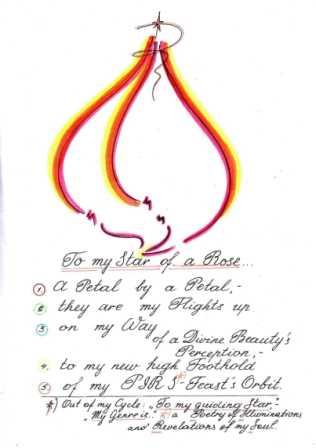 To my Star of a Rose...
1 A Petal by a Petal,-
2 they are my Flights up
3 on my Way
of a Divine Beauty's
Perception,-
4. to my new high Foothold
5. of my P.S.R.S-Feast's Orbit.
*) Out of my Cycle: „To my guiding Star,"-
„My Genre is:" a Poetry of Illuminations
and Revelations of my Soul.